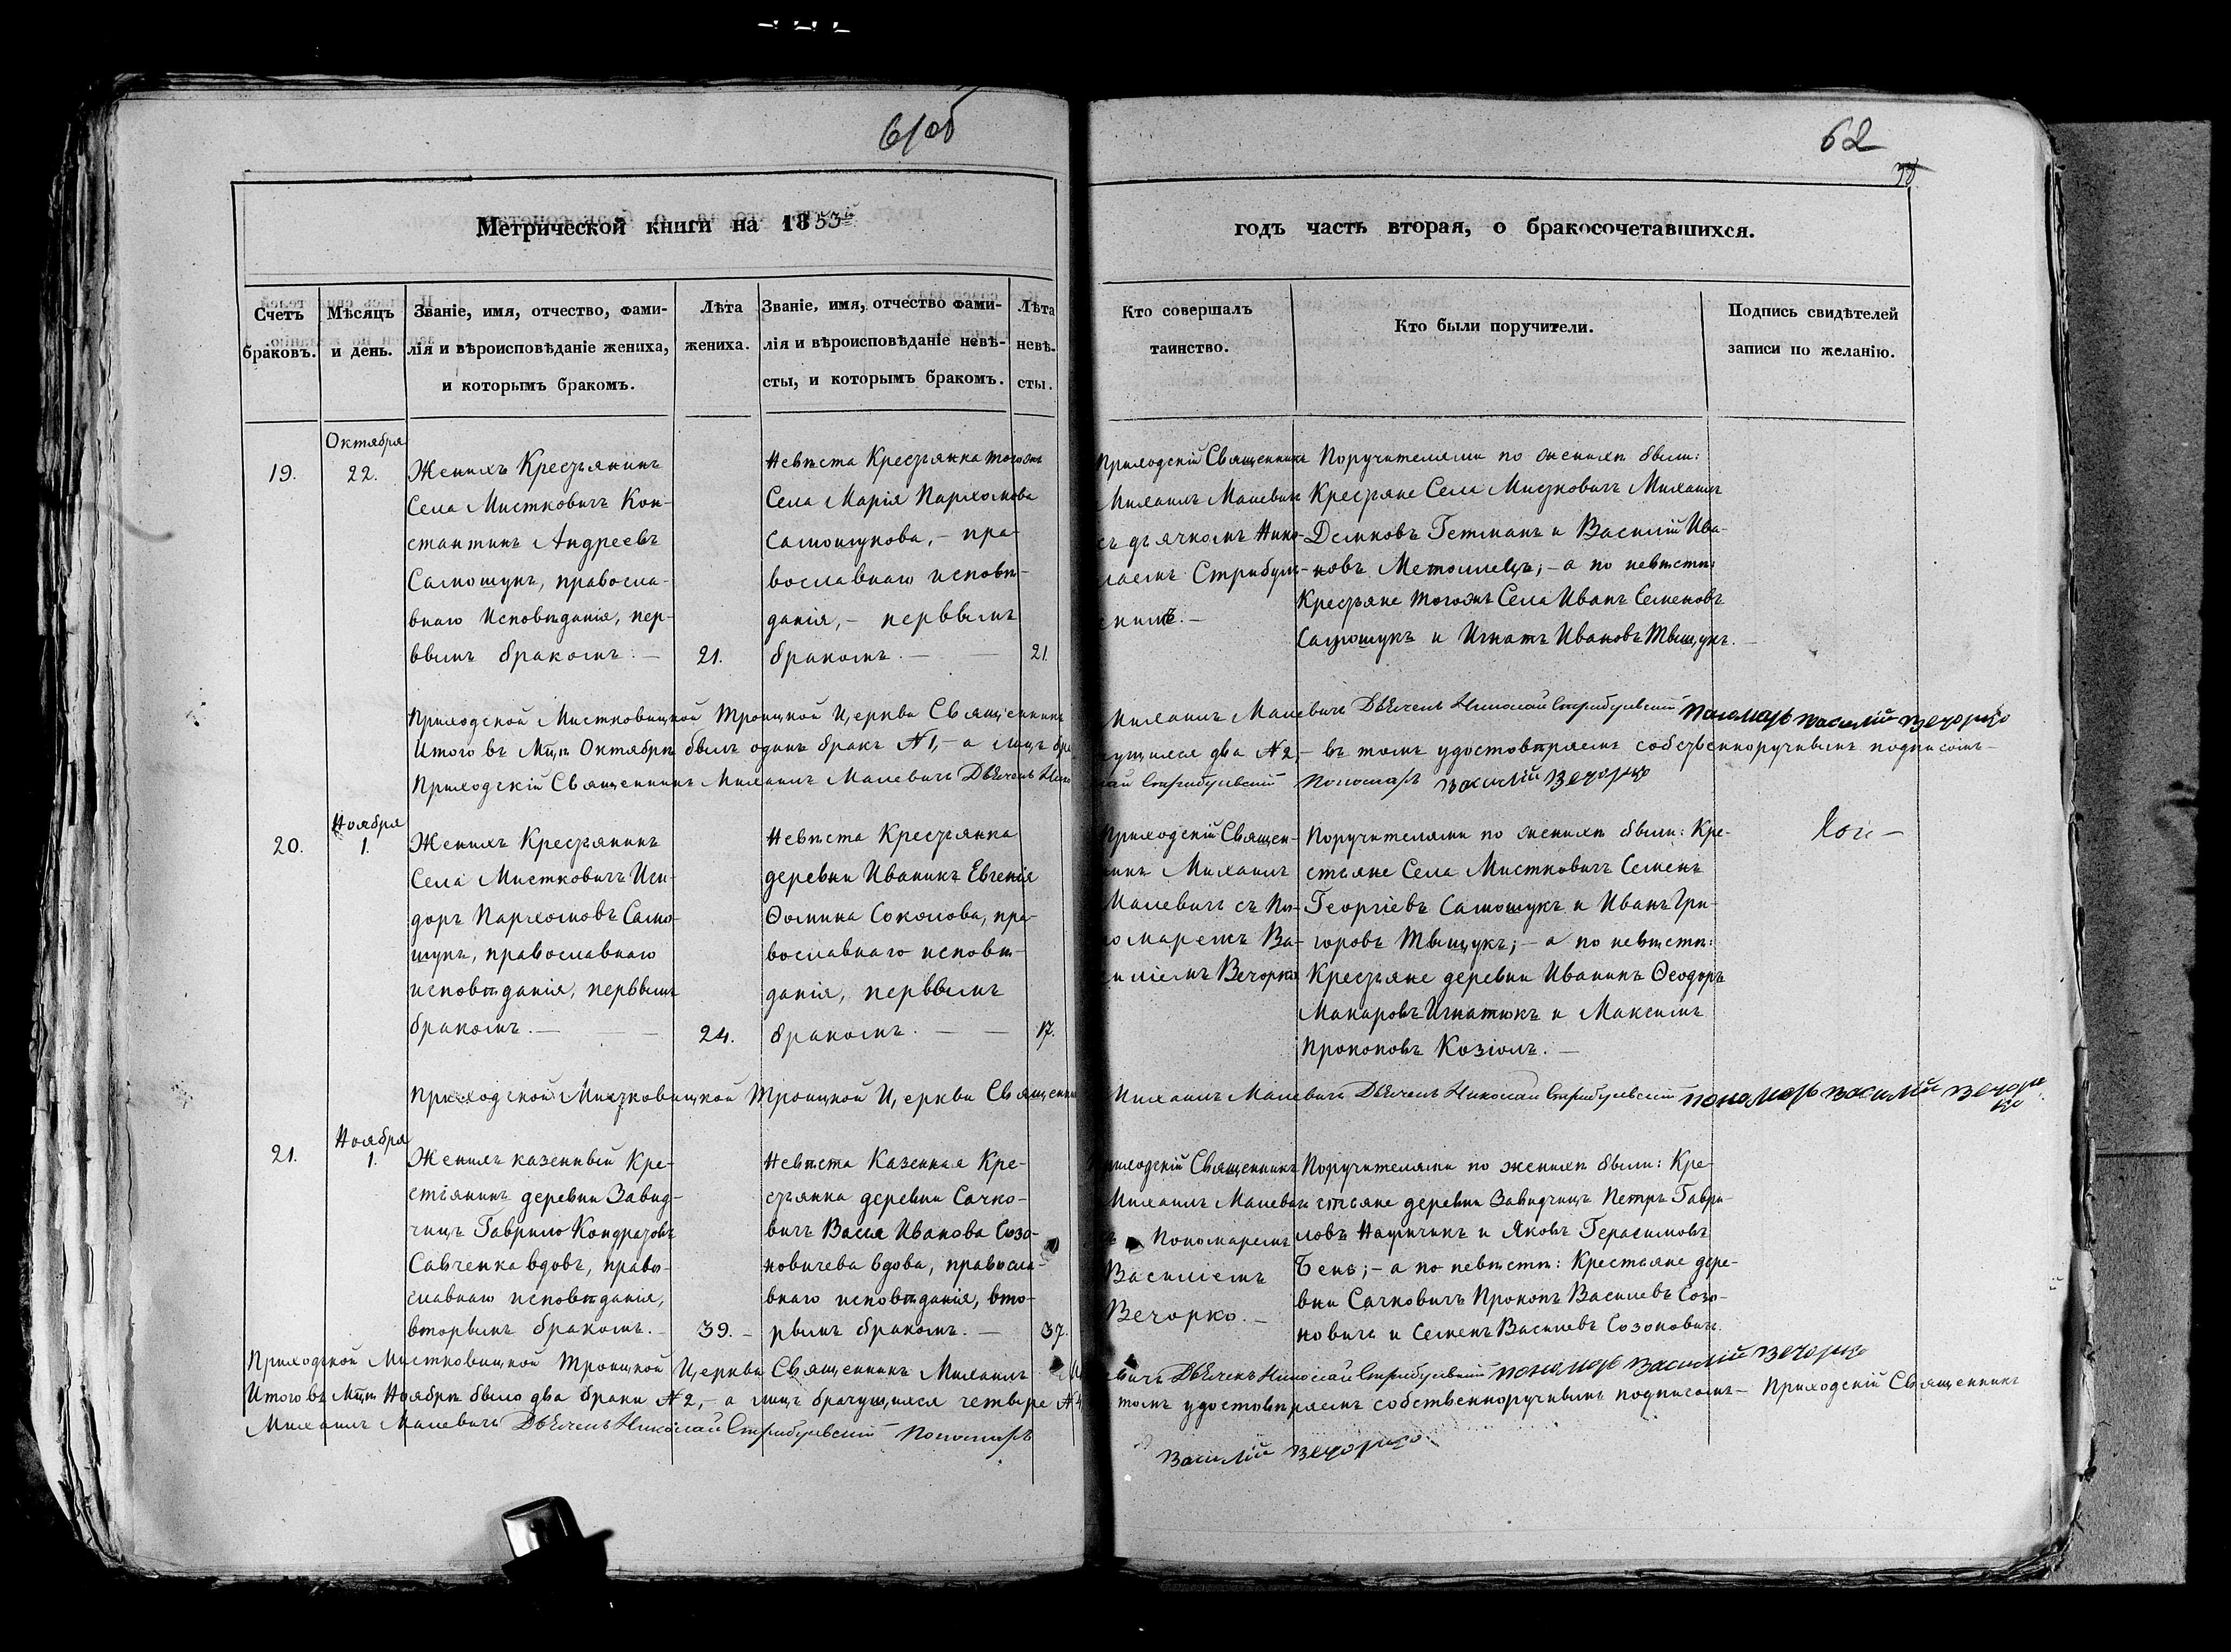 61об
62
Метрической книги на 1853й
годъ часть вторая, о бракосочетавшихся.
Счетъ браковъ.
Мѣсяцъ и день.
Званіе, имя, отчество, фами-
лія и вѣроисповѣданіе жениха,
и которымъ бракомъ.
Лѣта
жениха.
Званіе, имя, отчество фами-
лія и вѣроисповѣданіе невѣ-
сты, и которымъ бракомъ.
Лѣта
невѣ-
сты.
Кто совершалъ
таинство.
Кто были поручители.
Подпись свидѣтелей
записи по желанію.
19.
Октября
22.
Женихъ Крестьянинъ
Села Мистковичъ Кон-
стантинъ Андреевъ
Самошукъ, правосла-
внаго Исповѣданія, пер-
вымъ бракомъ. —
21.
Невѣста Крестьянка тогожъ
Села Марія Пархомова
Самошукова, – пра-
вославнаго исповѣ-
данія, – первымъ
бракомъ. — —
21.
Приходскій Священникъ
Михаилъ Малевичъ
съ дьячкомъ Нико-
лаемъ Стрибуль-
скимъ. —
Поручителями по женихѣ были:
Крестьяне Села Мистковичъ Михаилъ
Демковъ Гетманъ и Василій Ива-
новъ Метошецъ; – а по невѣстѣ:
Крестьяне тогожъ Села Иванъ Семеновъ
Самошукъ и Игнатъ Ивановъ Тыщукъ. —
Приходской Мистковицкой Троицкой Церкви Священникъ Михаилъ Малевичъ Дьячекъ Николай Стрибульскій Пономарь Василій Вечорко
Итого въ Мцѣ Октябрѣ былъ одинъ бракъ № 1, – а лицъ бра-чущихся два № 2, – въ томъ удостовѣряемъ собственноручнымъ подписомъ –
Приходскій Священникъ Михаилъ Малевичъ Дьячекъ Николай Стрибульскій Пономарь Василій Вечорко
20.
Ноября
1.
Женихъ Крестьянинъ
Села Мистковичъ Иси-
доръ Пархомовъ Само-
шукъ, православнаго
исповѣданія, первымъ
бракомъ. — —
24.
Невѣста Крестьянка
деревни Иваникъ Евгенія
Ѳомина Соколова, пра-
вославнаго исповѣ-
данія, первымъ
бракомъ. — —
17.
Приходскій Священ-
никъ Михаилъ
Малевичъ съ По-
номаремъ Ва-
силіемъ Вечорко
Поручителями по женихѣ были: Кре-
стьяне Села Мистковичъ Семенъ
Георгіевъ Самошукъ и Иванъ Гри-
горовъ Тыщукъ; – а по невѣстѣ:
Крестьяне деревни Иваникъ Ѳеодоръ
Макаровъ Игнатюкъ и Максимъ
Прокоповъ Козіолъ. —
Приходской Мистковицкой Троицкой Церкви Священникъ Михаилъ Малевичъ Дьячекъ Николай Стрибульскій Пономарь Василій Вечорко
21.
Ноября
1.
Женихъ казенный Кре-
стьянинъ деревни Завид-
чицъ Гаврило Кондратовъ
Савченка вдовъ, право-
славнаго исповѣданія,
вторымъ бракомъ. —
39. –
Невѣста Казенная Кре-
стьянка деревни Сачко-
вичъ Васса Иванова Созо-
новичева вдова, правосла-
внаго исповѣданія, вто-
рымъ бракомъ. —
37.
Приходскій Священникъ
Михаилъ Малевичъ
съ Пономаремъ
Василіемъ
Вечорко. —
Поручителями по женихѣ были: Кре-
стьяне деревни Завидчицъ Петръ Гаври-
ловъ и Яковъ Герасимовъ
Бенъ; – а по невѣстѣ: Крестьяне дере-
вни Сачковичъ Прокопъ Василевъ Созо-
новичъ и Семенъ Василевъ Созоновичъ.
Приходской Мистковицкой Троицкой Церкви Священникъ Михаилъ Малевичъ Дьячекъ Николай Стрибульскій Пономарь Василій Вечорко
Итого въ Мцѣ Ноябрѣ было два браки № 2, – а лицъ брачущихся четыре № 4 томъ удостовѣряемъ собственноручнымъ подписомъ – Приходскій Священникъ
Михаилъ Малевичъ Дьячекъ Николай Стрибульскій Пономарь Василій Вечорко